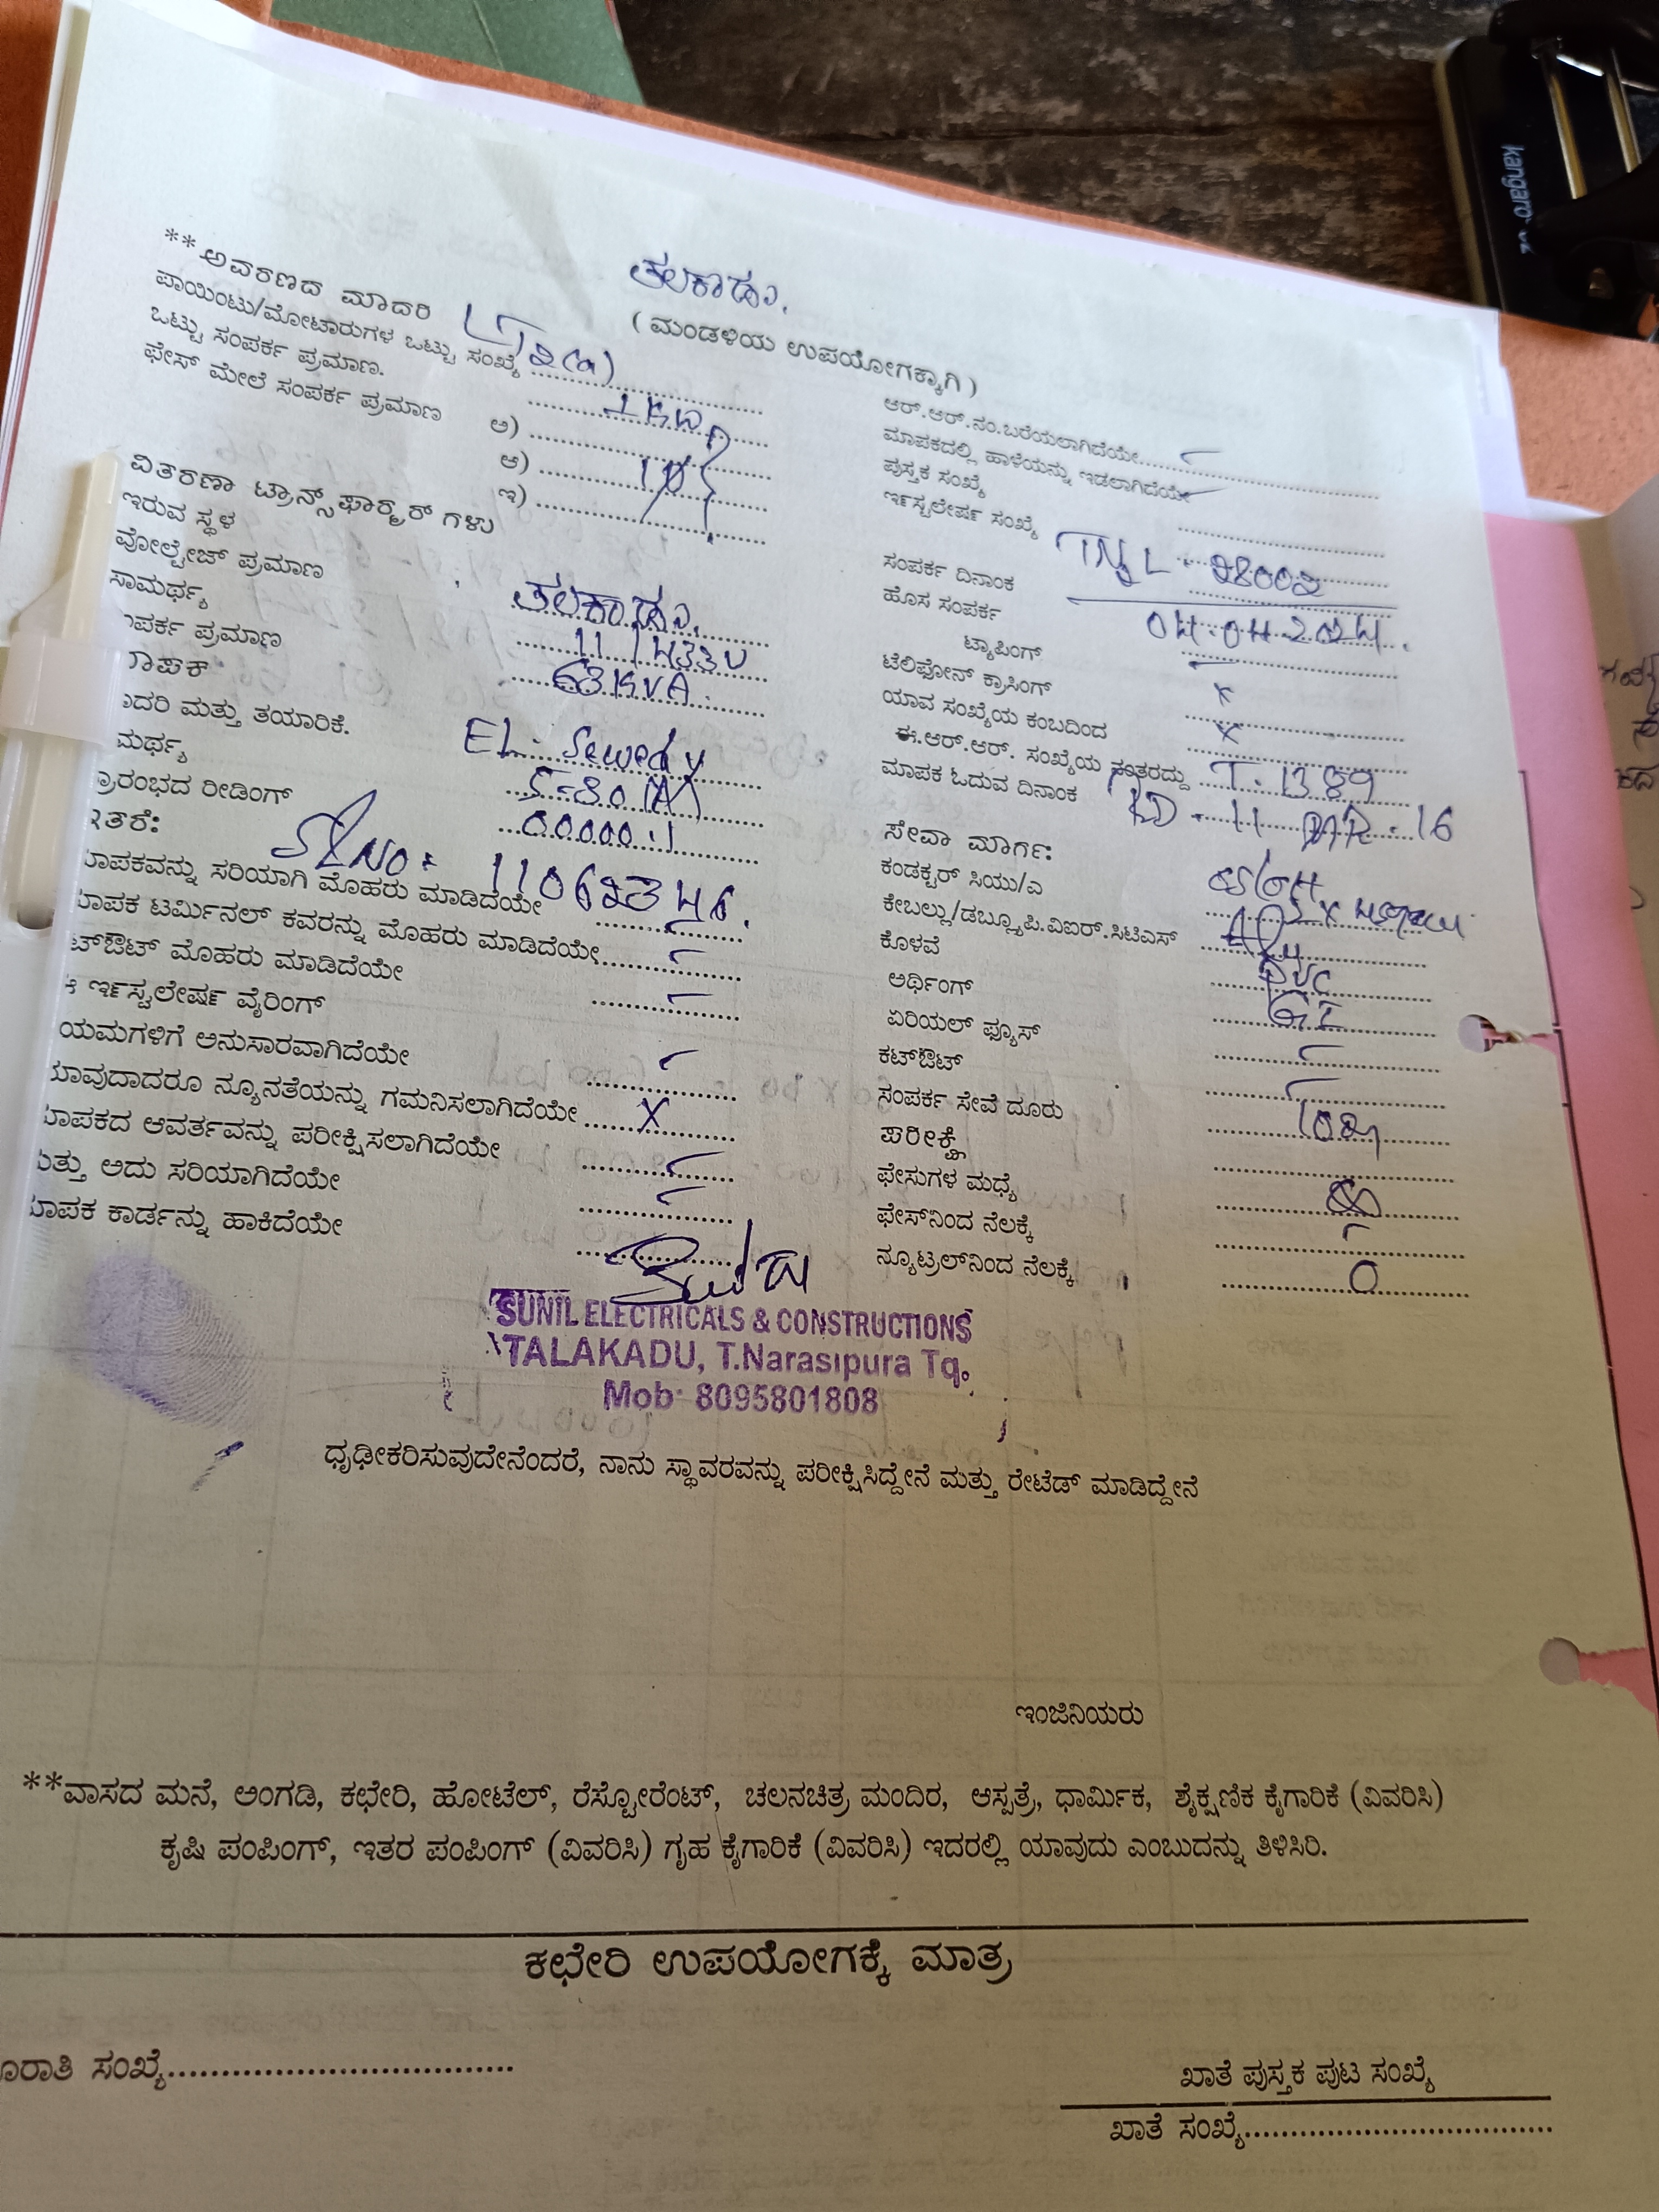 ತಲಕಾಡು.
(ಮಂಡಳಿಯ ಉಪಯೋಗಕ್ಕಾಗಿ)
**ಅವರಣದ ಮಾದರಿ LT 2(a)
ಪಾಯಿಂಟು/ಮೋಟಾರುಗಳ ಒಟ್ಟು ಸಂಖ್ಯೆ
ಒಟ್ಟು ಸಂಪರ್ಕ ಪ್ರಮಾಣ. 1KW
ಫೇಸ್ ಮೇಲೆ ಸಂಪರ್ಕ ಪ್ರಮಾಣ ಅ)
ಆ)
ಇ)
ವಿತರಣಾ ಟ್ರಾನ್ಸ್‌ಫಾರ್‍ಮರ್ ಗಳು
ಇರುವ ಸ್ಥಳ ತಲಕಾಡು.
ವೋಲ್ಟೇಜ್ ಪ್ರಮಾಣ 11/433V
ಸಾಮರ್ಥ್ಯ 63KVA.
ಪರ್ಕ ಪ್ರಮಾಣ
ಾಪಕ
ದರಿ ಮತ್ತು ತಯಾರಿಕೆ. EL-Sewedy
ಮರ್ಥ್ಯ 5-30(A)
ಾರಂಭದ ರೀಡಿಂಗ್ 00000.1
ಇತರೆ: Sl No: 11062346.
ಾಪಕವನ್ನು ಸರಿಯಾಗಿ ಮೊಹರು ಮಾಡಿದೆಯೇ
ಾಪಕ ಟರ್ಮಿನಲ್ ಕವರನ್ನು ಮೊಹರು ಮಾಡಿದೆಯೇ
ಟ್‌ಔಟ್ ಮೊಹರು ಮಾಡಿದೆಯೇ
ಇರ್ನ್ಸ್ಟಲೇಷರ್ನ್ ವೈರಿಂಗ್
ಯಮಗಳಿಗೆ ಅನುಸಾರವಾಗಿದೆಯೇ
ಾವುದಾದರೂ ನ್ಯೂನತೆಯನ್ನು ಗಮನಿಸಲಾಗಿದೆಯೇ X
ಾಪಕದ ಆವರ್ತವನ್ನು ಪರೀಕ್ಷಿಸಲಾಗಿದೆಯೇ
ತ್ತು ಅದು ಸರಿಯಾಗಿದೆಯೇ
ಾಪಕ ಕಾರ್ಡನ್ನು ಹಾಕಿದೆಯೇ
ಆರ್.ಆರ್.ನಂ.ಬರೆಯಲಾಗಿದೆಯೇ
ಮಾಪಕದಲ್ಲಿ ಹಾಳೆಯನ್ನು ಇಡಲಾಗಿದೆಯೇ
ಪುಸ್ತಕ ಸಂಖ್ಯೆ
ಇರ್ನ್ಸ್ಟಲೇಷರ್ನ್ ಸಂಖ್ಯೆ TNL-28002
ಸಂಪರ್ಕ ದಿನಾಂಕ 04.04.2024.
ಹೊಸ ಸಂಪರ್ಕ
ಟ್ಯಾಪಿಂಗ್ X
ಟೆಲಿಫೋನ್ ಕ್ರಾಸಿಂಗ್ X
ಯಾವ ಸಂಖ್ಯೆಯ ಕಂಬದಿಂದ
ಈ.ಆರ್.ಆರ್. ಸಂಖ್ಯೆಯ ನಂತರದ್ದು T.1389
ಮಾಪಕ ಓದುವ ದಿನಾಂಕ RD-11 MR-16
ಸೇವಾ ಮಾರ್ಗ:
ಕಂಡಕ್ಟರ್ ಸಿಯು/ಎ
ಕೇಬಲ್ಲು/ಡಬ್ಲ್ಯೂಪಿ.ವಿಐಆರ್.ಸಿಟಿಎಸ್
ಕೊಳವೆ PVC
ಅರ್ಥಿಂಗ್ GI
ಏರಿಯಲ್ ಫ್ಯೂಸ್
ಕಟ್‌ಔಟ್
ಸಂಪರ್ಕ ಸೇವೆ ದೂರು
ಪರೀಕ್ಷೆ
ಫೇಸುಗಳ ಮಧ್ಯೆ
ಫೇಸ್‌ನಿಂದ ನೆಲಕ್ಕೆ
ನ್ಯೂಟ್ರಲ್‌ನಿಂದ ನೆಲಕ್ಕೆ 0
SUNIL ELECTRICALS & CONSTRUCTIONS
TALAKADU, T.Narasipura Tq.
Mob: 8095801808
ಧೃಢೀಕರಿಸುವುದೇನೆಂದರೆ, ನಾನು ಸ್ಥಾವರವನ್ನು ಪರೀಕ್ಷಿಸಿದ್ದೇನೆ ಮತ್ತು ರೇಟೆಡ್ ಮಾಡಿದ್ದೇನೆ
ಇಂಜಿನಿಯರು
**ವಾಸದ ಮನೆ, ಅಂಗಡಿ, ಕಛೇರಿ, ಹೋಟೆಲ್, ರೆಸ್ಟೋರೆಂಟ್, ಚಲನಚಿತ್ರ ಮಂದಿರ, ಆಸ್ಪತ್ರೆ, ಧಾರ್ಮಿಕ, ಶೈಕ್ಷಣಿಕ ಕೈಗಾರಿಕೆ (ವಿವರಿಸಿ)
ಕೃಷಿ ಪಂಪಿಂಗ್, ಇತರ ಪಂಪಿಂಗ್ (ವಿವರಿಸಿ) ಗೃಹ ಕೈಗಾರಿಕೆ (ವಿವರಿಸಿ) ಇದರಲ್ಲಿ ಯಾವುದು ಎಂಬುದನ್ನು ತಿಳಿಸಿರಿ.
ಕಛೇರಿ ಉಪಯೋಗಕ್ಕೆ ಮಾತ್ರ
ರಾತಿ ಸಂಖ್ಯೆ
ಖಾತೆ ಪುಸ್ತಕ ಪುಟ ಸಂಖ್ಯೆ
ಖಾತೆ ಸಂಖ್ಯೆ
kangaro